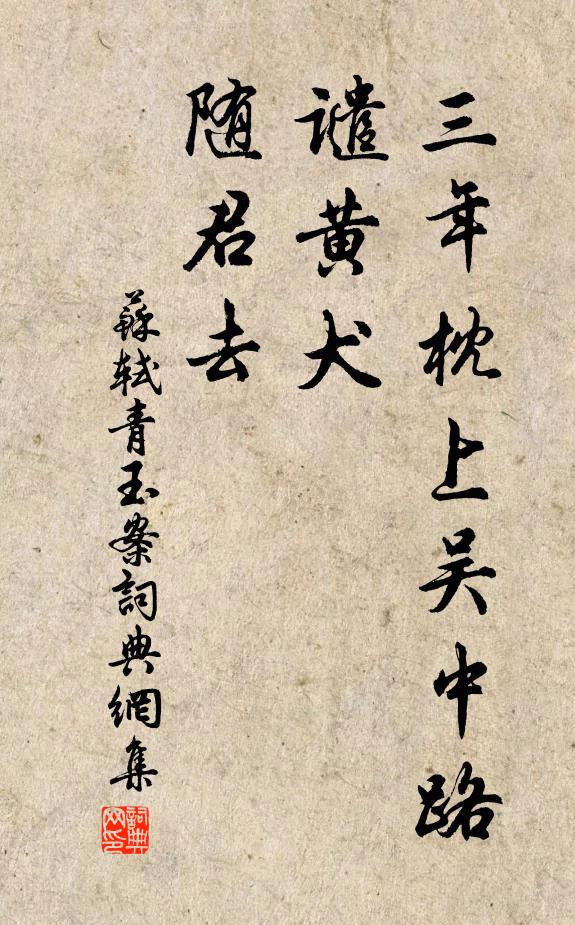 三年枕上吴中路
譴黄犬
随君去
蘇軾青玉案詞典網集
詞典
网印